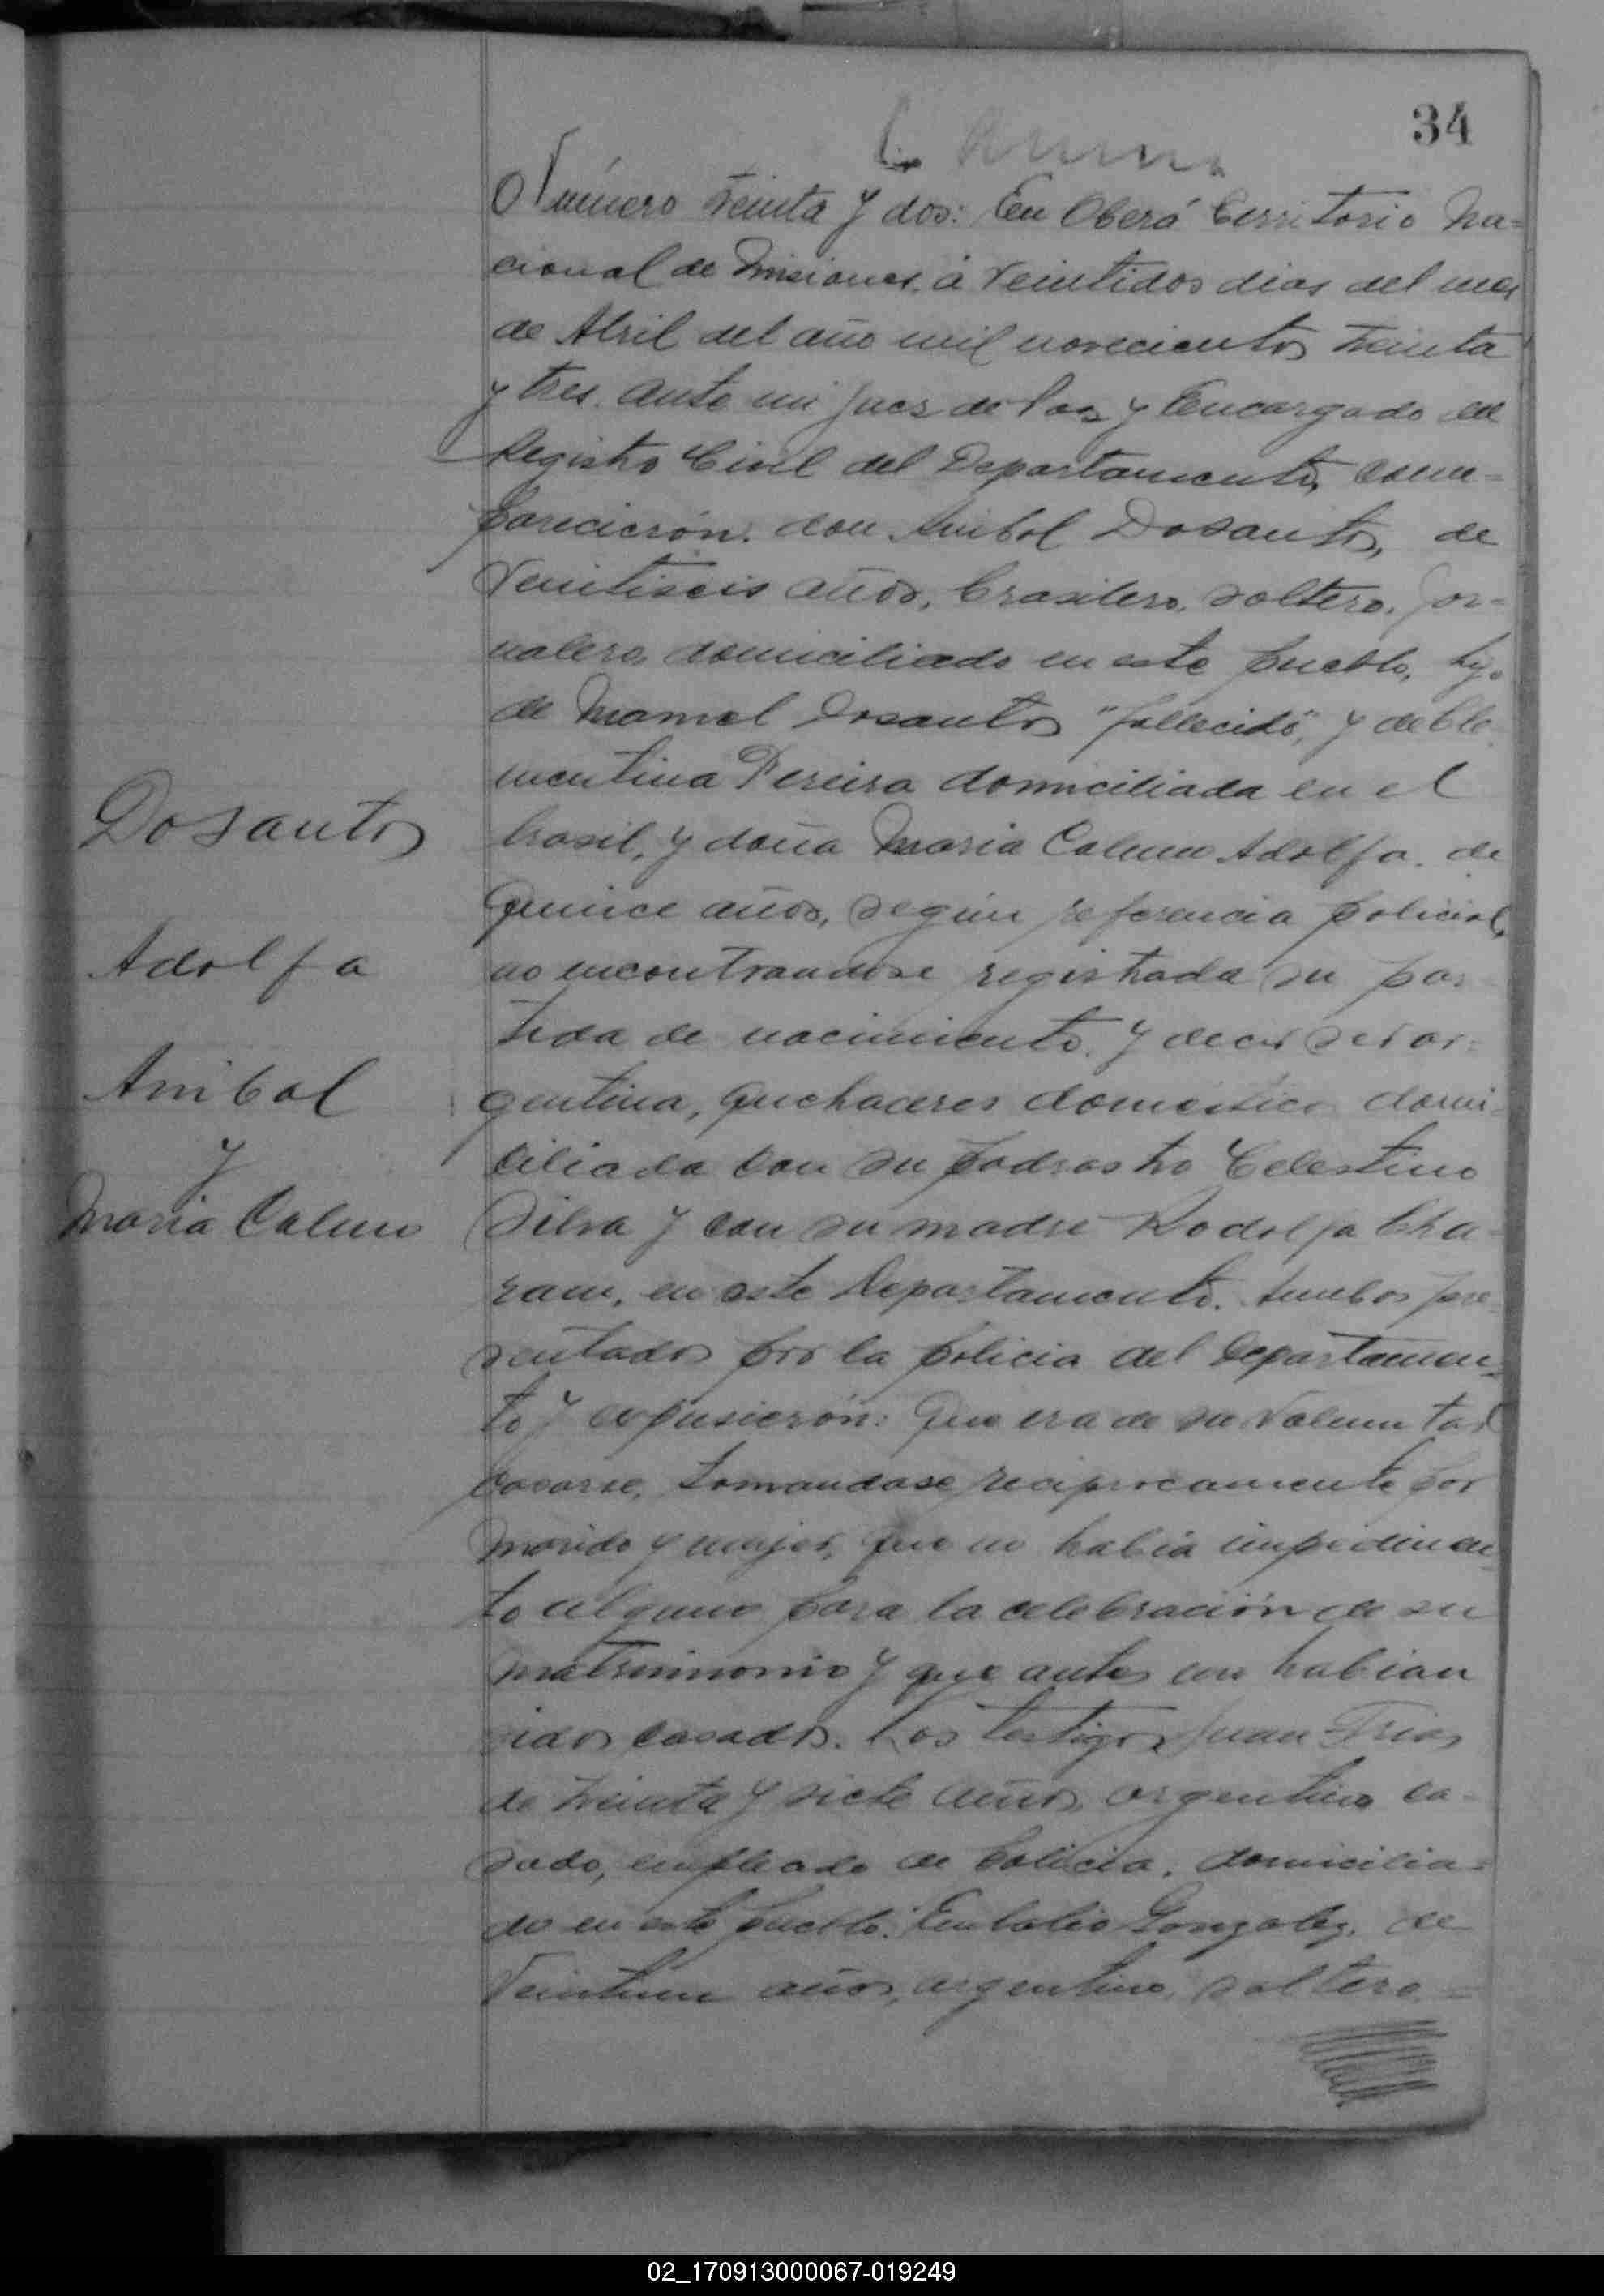 34
Número treinta y dos: En Oberá Territorio Na=
cional de Misiones, á veintidos dias del mes
de Abril del año mil novecientos treinta
y tres. ante mi Juez de Paz y Encargado del
Registro Civil del Departamento, com=
parecierón: don Anibal Dosantos, de
Veintiseis años, brasilero, soltero, jor=
nalero, domiciliado en este pueblo, hijo
de Manuel Dosantos "fallecido", y de Cle
mentina Pereira domiciliada en el
brasil, y doña Maria Calum Adolfa, de
quince años, según referencia policial,
no encontrandose registrada su par
tida de nacimiento, y decir ser ar=
gentina, quehaceres domestico domi
ciliada con su padrastro Celestino
Silva y con su madre Rodolfa Cha=
ram, en este Departamento. Ambos pre
sentados por la policia del Departamen=
to y expusierón: Que era de su voluntad
casarse, tomandose reciprocamente por
marido y mujer, que no habia impedimen
to alguno para la celebración de su
matrimonio y que antes no habian
sidos casados. Los testigos Juan Frias
de treinta y siete años, argentino ca=
sado, empleado de Policia, domicilia=
do en este pueblo. Eulalio Gonzalez, de
Veintiun años, argentino, soltero =
Dosantos
Adolfa
Anibal
y
Maria Calum
02_170913000067-019249